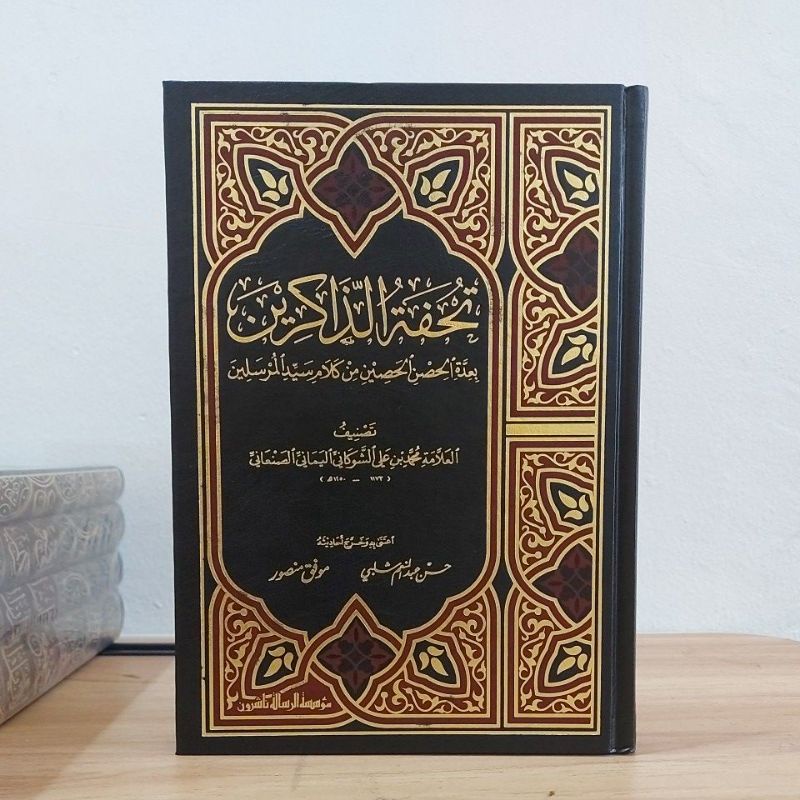 تُحْفَةُ الذَّاكِرِينَ
بِعِدَّةِ الْحِصْنِ الْحَصِينِ مِنْ كَلَامِ سَيِّدِ الْمُرْسَلِينَ
تَصْنِيفُ
الْعَلَّامَةِ مُحَمَّدِ بْنِ عَلِي الشَّوْكَانِيِّ الْيَمَانِيِّ الصَّنْعَانِيِّ
( ١١٧٣ — ١٢٥٠هـ )
اعْتَنَى بِهِ وَخَرَّجَ أَحَادِيثَهُ
حسن عبد المنعم شلبي موفق منصور
مؤسسة الرسالة ناشرون